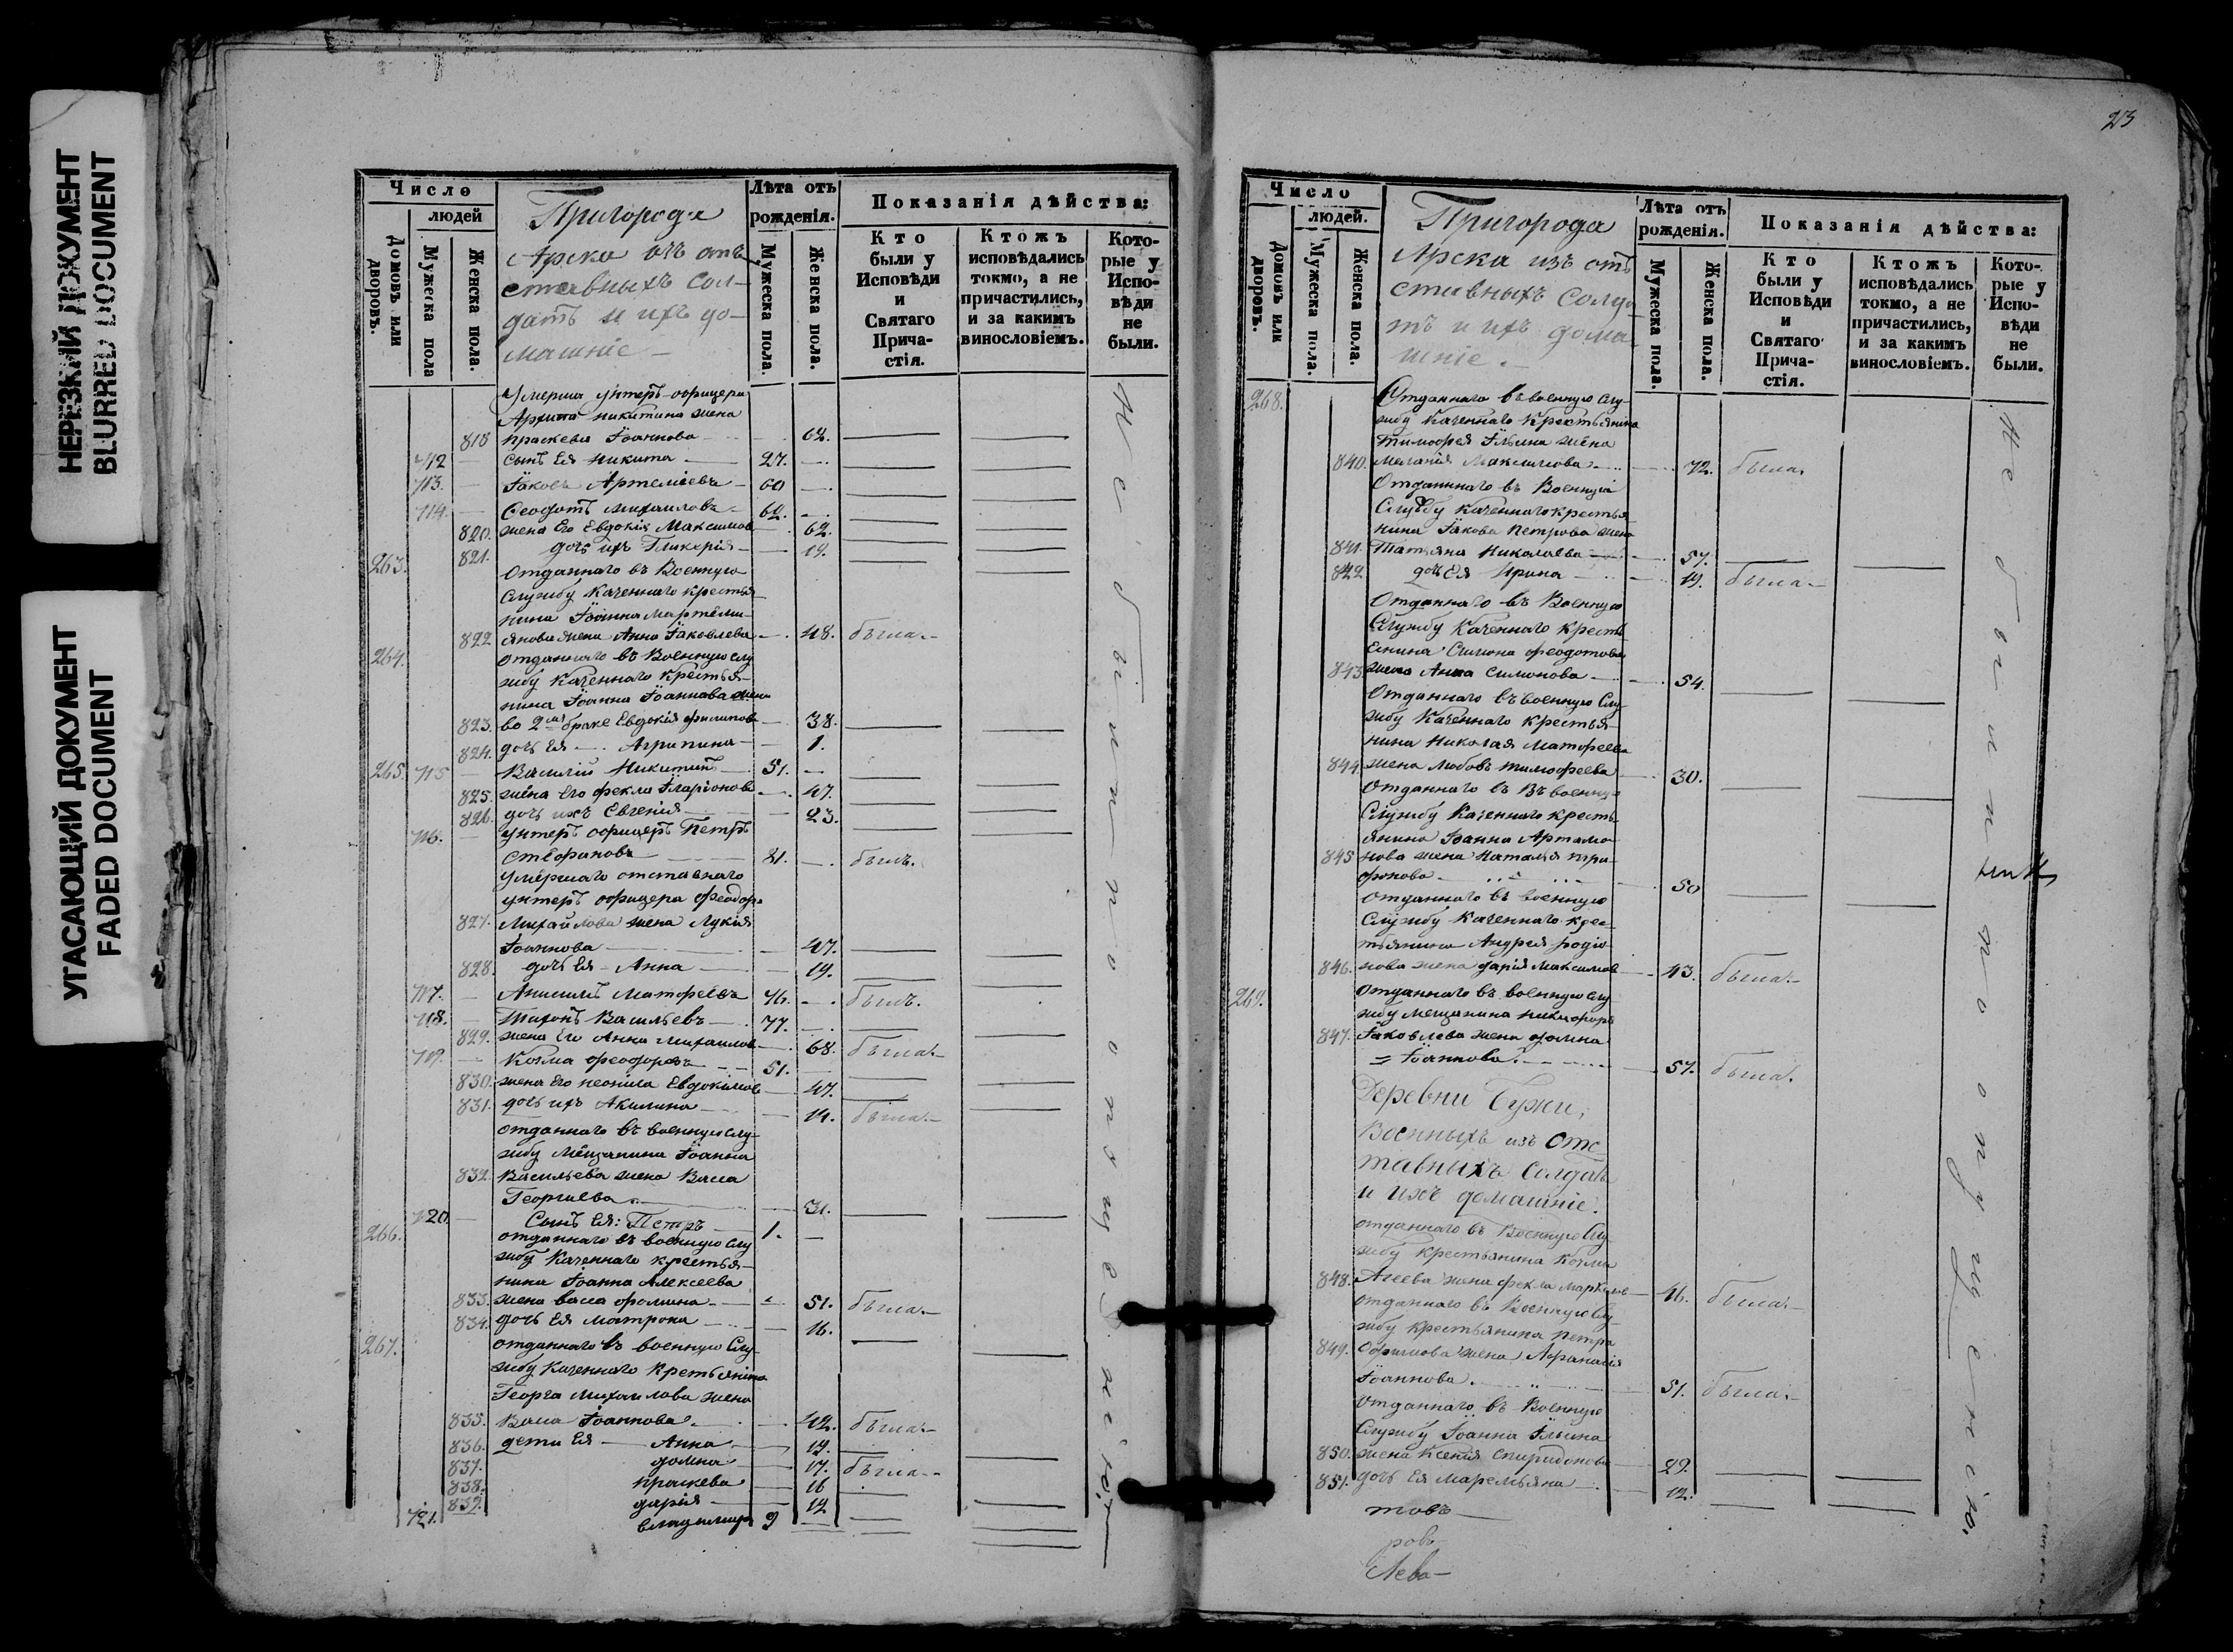 НЕРЕЗКИЙ ДОКУМЕНТ
BLURRED DOCUMENT
УГАСАЮЩИЙ ДОКУМЕНТ
FADED DOCUMENT
Число
людей
Домовъ или дворовъ.
Мужеска пола
Женска пола.
Пригорода
Арска изъ от
ставныхъ сол-
датъ и ихъ до-
машніе
Лѣта отъ рожденія.
Мужеска пола.
Женска пола.
Показанія дѣйства:
Кто были у Исповѣди и Святаго Прича-стія.
Ктожъ исповѣдались токмо, а не причастились, и за какимъ винословіемъ.
Кото-рые у Испо-вѣди не были.
унтеръ-офицера
Никитина жена
818 Праскева Іоаннова 62.
712 сынъ Ея Никита 27.
713. Іаковъ Артеміевъ 60
714. Ѳеодотъ Михаиловъ 62.
820. жена Его Евдокія Максимов 62.
821. дочь ихъ Гликерія 19.
263. Отданнаго въ Военную
Службу Казеннаго крестья
нина Іоанна Мартеми-
822 янова жена Анна Іаковлева 48. была
264. отданнаго въ Военную слу
жбу казеннаго крестья-
нина Іоанна Іоаннова жена
823. во 2мъ браке Евдокія Филипов 38.
824. дочь Ея Агрипина 1.
265. 715 Василій Никитинъ 51.
825. жена Его Фекла Иларіонов 47.
826. дочь ихъ Евгенія 23.
716. унтеръ офицеръ Петръ
Стефановъ 81. былъ.
умершаго отставнаго
унтеръ офицера Феодор
827. Михайлова жена Лукія
Іоаннова 47.
828. дочь Ея Анна 19.
717. Анисимъ Матфеевъ 76. былъ.
718. Тихонъ Васильевъ 77.
829. жена Его Анна Михаилов 68. была
719. Козма Феодоровъ 51.
830. жена Его Неонила Евдокимов 47.
831. дочь ихъ Акилина 14. была
отданнаго въ военную слу-
жбу мещанина Іоанна
832. Васильева жена Васса
Георгиева 31.
720. Сынъ Ея: Петръ 1.
266. отданнаго въ военную слу
жбу Казеннаго крестья-
нина Іоанна Алексеева
833. жена Васса Фомина 51. была
834. дочь Ея Матрона 16.
267. отданнаго въ военную Слу
жбу Казеннаго Крестьянина
Георга Михаилова жена
835. Васса Іоаннова 42. была
836. дети Ея Анна 19.
837. Домна 17. была
838. Праскева 16
839. Дарія 12
721. Владимиръ 9
Не были по опущенію.
213
Число
людей.
Домовъ или дворовъ.
Мужеска пола.
Женска пола.
Пригорода
Арска изъ от
ставныхъ солда
тъ и ихъ дома
шніе.
Лѣта отъ рожденія.
Мужеска пола.
Женска пола.
Показанія дѣйства:
Кто были у Исповѣди и Святаго Прича-стія.
Ктожъ исповѣдались токмо, а не причастились, и за какимъ винословіемъ.
Кото-рые у Испо-вѣди не были.
268. Отданнаго въ военную слу-
жбу Казеннаго крестьянина
Тимофея Ильина жена
840. Меланія Максимова 72. была
Отданнаго въ Военную
Службу Казеннаго крестья
нина Іакова Петрова жена
841. Татьяна Николаева 57.
842 дочь Ея Ирина 19. была
Отданнаго въ Военную
Службу Казеннаго кресть
янина Симона Феодотова
843. жена Анна Симонова 54.
Отданнаго въ военную Слу-
жбу Казеннаго крестья
нина Николая Матфеева
844. жена Любовь Тимофеева 30.
Отданнаго въ Военную
Службу Казеннаго кресть
янина Іоанна Артамо-
845 нова жена Наталья Три-
фонова 50
отданнаго въ военную
Службу Казеннаго крес-
тьянина Андрея Родіо
846. нова жена Дарія Максимов 43. была
269. Отданнаго въ военную слу
жбу мещанина Никифора
847. Іаковлева жена Домна
Іоаннова. 57. была.
Деревни
Военныхъ изъ Отс
тавныхъ Солдатъ
и ихъ домашніе.
отданнаго въ Военную Слу-
жбу крестьянина Козмы
848. Агеева жена Фекла Маркелов 46. была
отданнаго въ Военную Слу-
жбу крестьянина Петра
849. Ефимова жена Афанасія
Іоаннова. 51. была
отданнаго въ Военную
Службу Іоанна Ильина
850. жена Ксенія Спиридонова 29.
851. дочь Ея Маремьяна 12.
товъ
ровъ
Лева
Не были по опущенію.